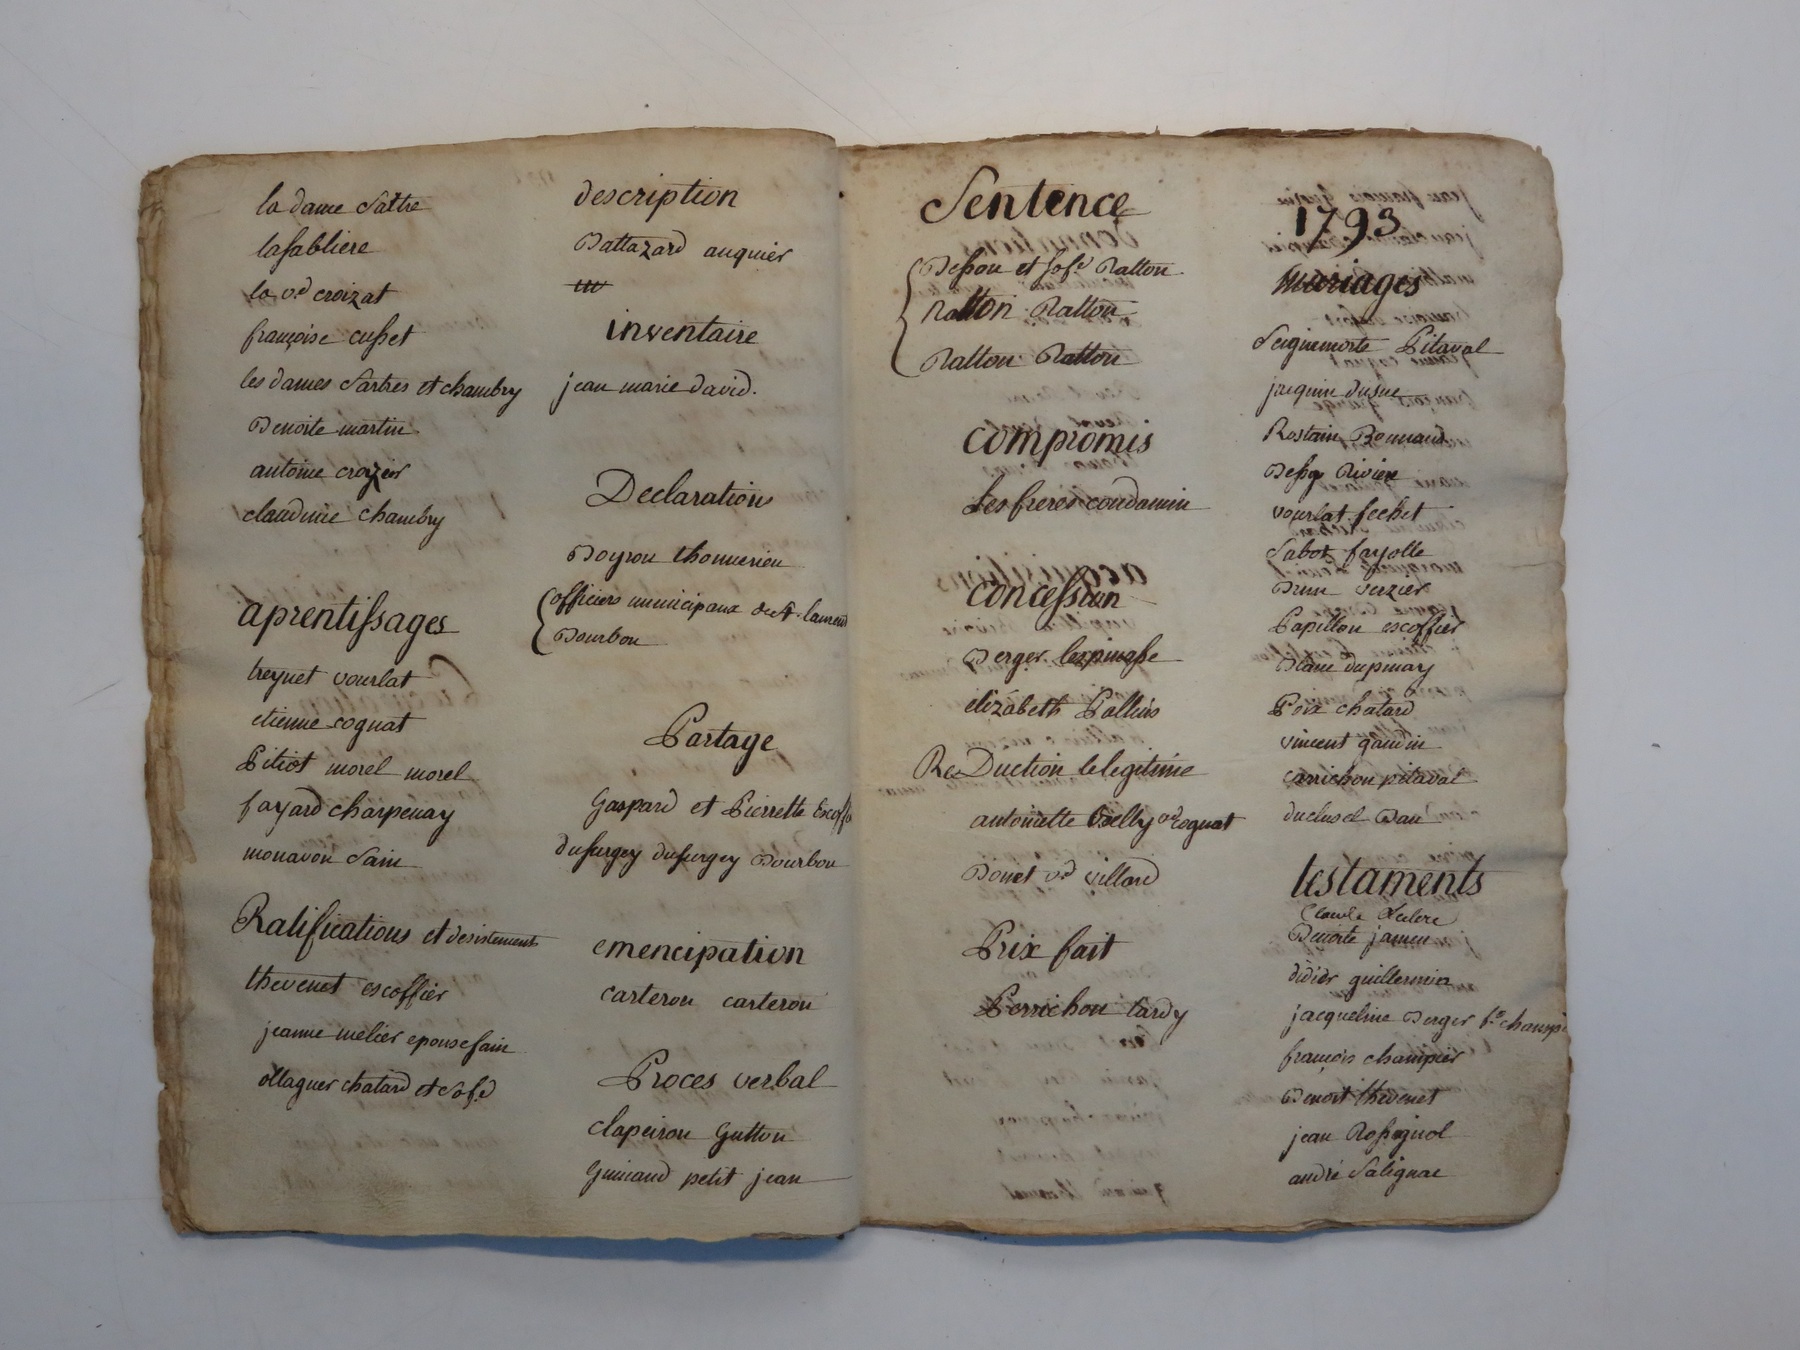 la dame Sattre
lasabliere
la vd croizat
françoise cusset
les dames Sartres et chambry
Benoite martin
antoine crozier
claudine chambry
aprentissages
treynet vourlat
etienne cognat
Pitiot morel morel
fayard charpenay
monavon Sain
Ratifications et desistements
thevenet escoffier
jeanne melier epouse sain
ollagner chatard et
description
Battazard auquier
inventaire
jean marie david.
Declaration
Boyron thonnerieu
officiers municipaux de St. laurent
Bourbon
Partage
Gaspard et Pierrette Escoff
dufurgey dufurgey Bourbon
emencipation
carteron carteron
Proces verbal
clapeiron Gutton
Guinand petit jean
Sentence
et Ratton
Ratton Ratton
Ratton Ratton
compromis
Les freres condamin
concession
Berger lespinasse
elizabeth
Reduction de legitime
antoinette vd cognat
Bonet vd villard
Prix fait
Perrichon tardy
1793
mariages
Seignemorte Pitaval
jacquin
Rostain Bonnand
Rivier
vourlat fechet
Sabot fayolle
Brun verzier
Papillon escoffier
Blanc dupinay
Poix chatard
vincent gaudin
carrichon pitaval
duclusel Dau
testaments
Claude
Benoite jamen
didier guillermin
jacqueline Berger fe champi
françois champier
Benoit thevenet
jean Rossignol
andré Salignac